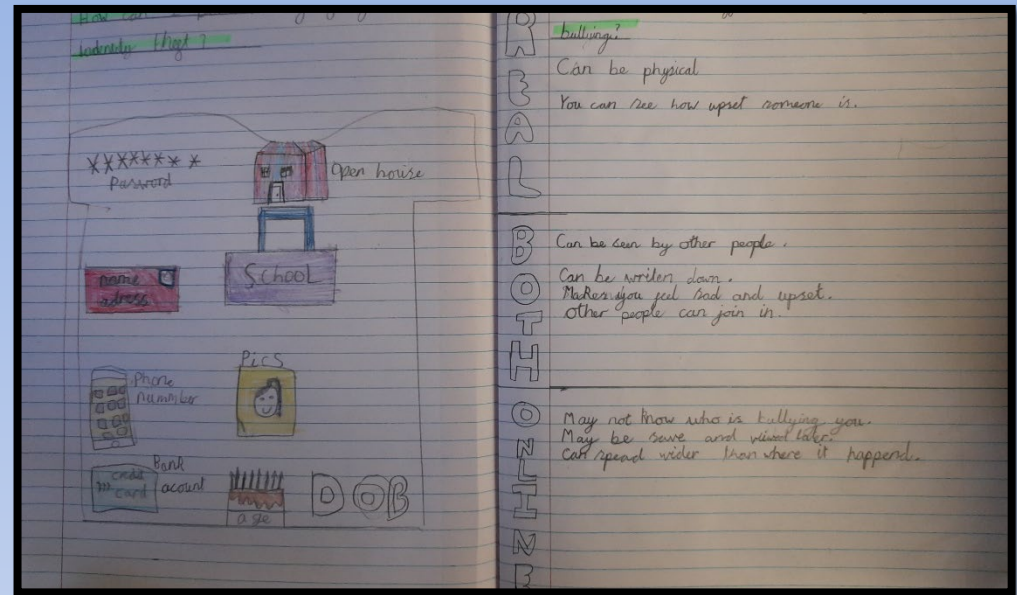 How can
Iadenity theft?
******* *
Password
Open house
name
adress
SCHOOL
Phone
nummber
Pics
credit
card
Bank
acount
age
DOB
REAL
bullying?
Can be physical
You can see how upset someone is.
BOTH
Can be seen by other people.
Can be writen down.
Makes you feel sad and upset.
Other people can join in.
ONLINE
May not know who is bullying you.
May be save and viewd later.
Can spread wider than where it happend.